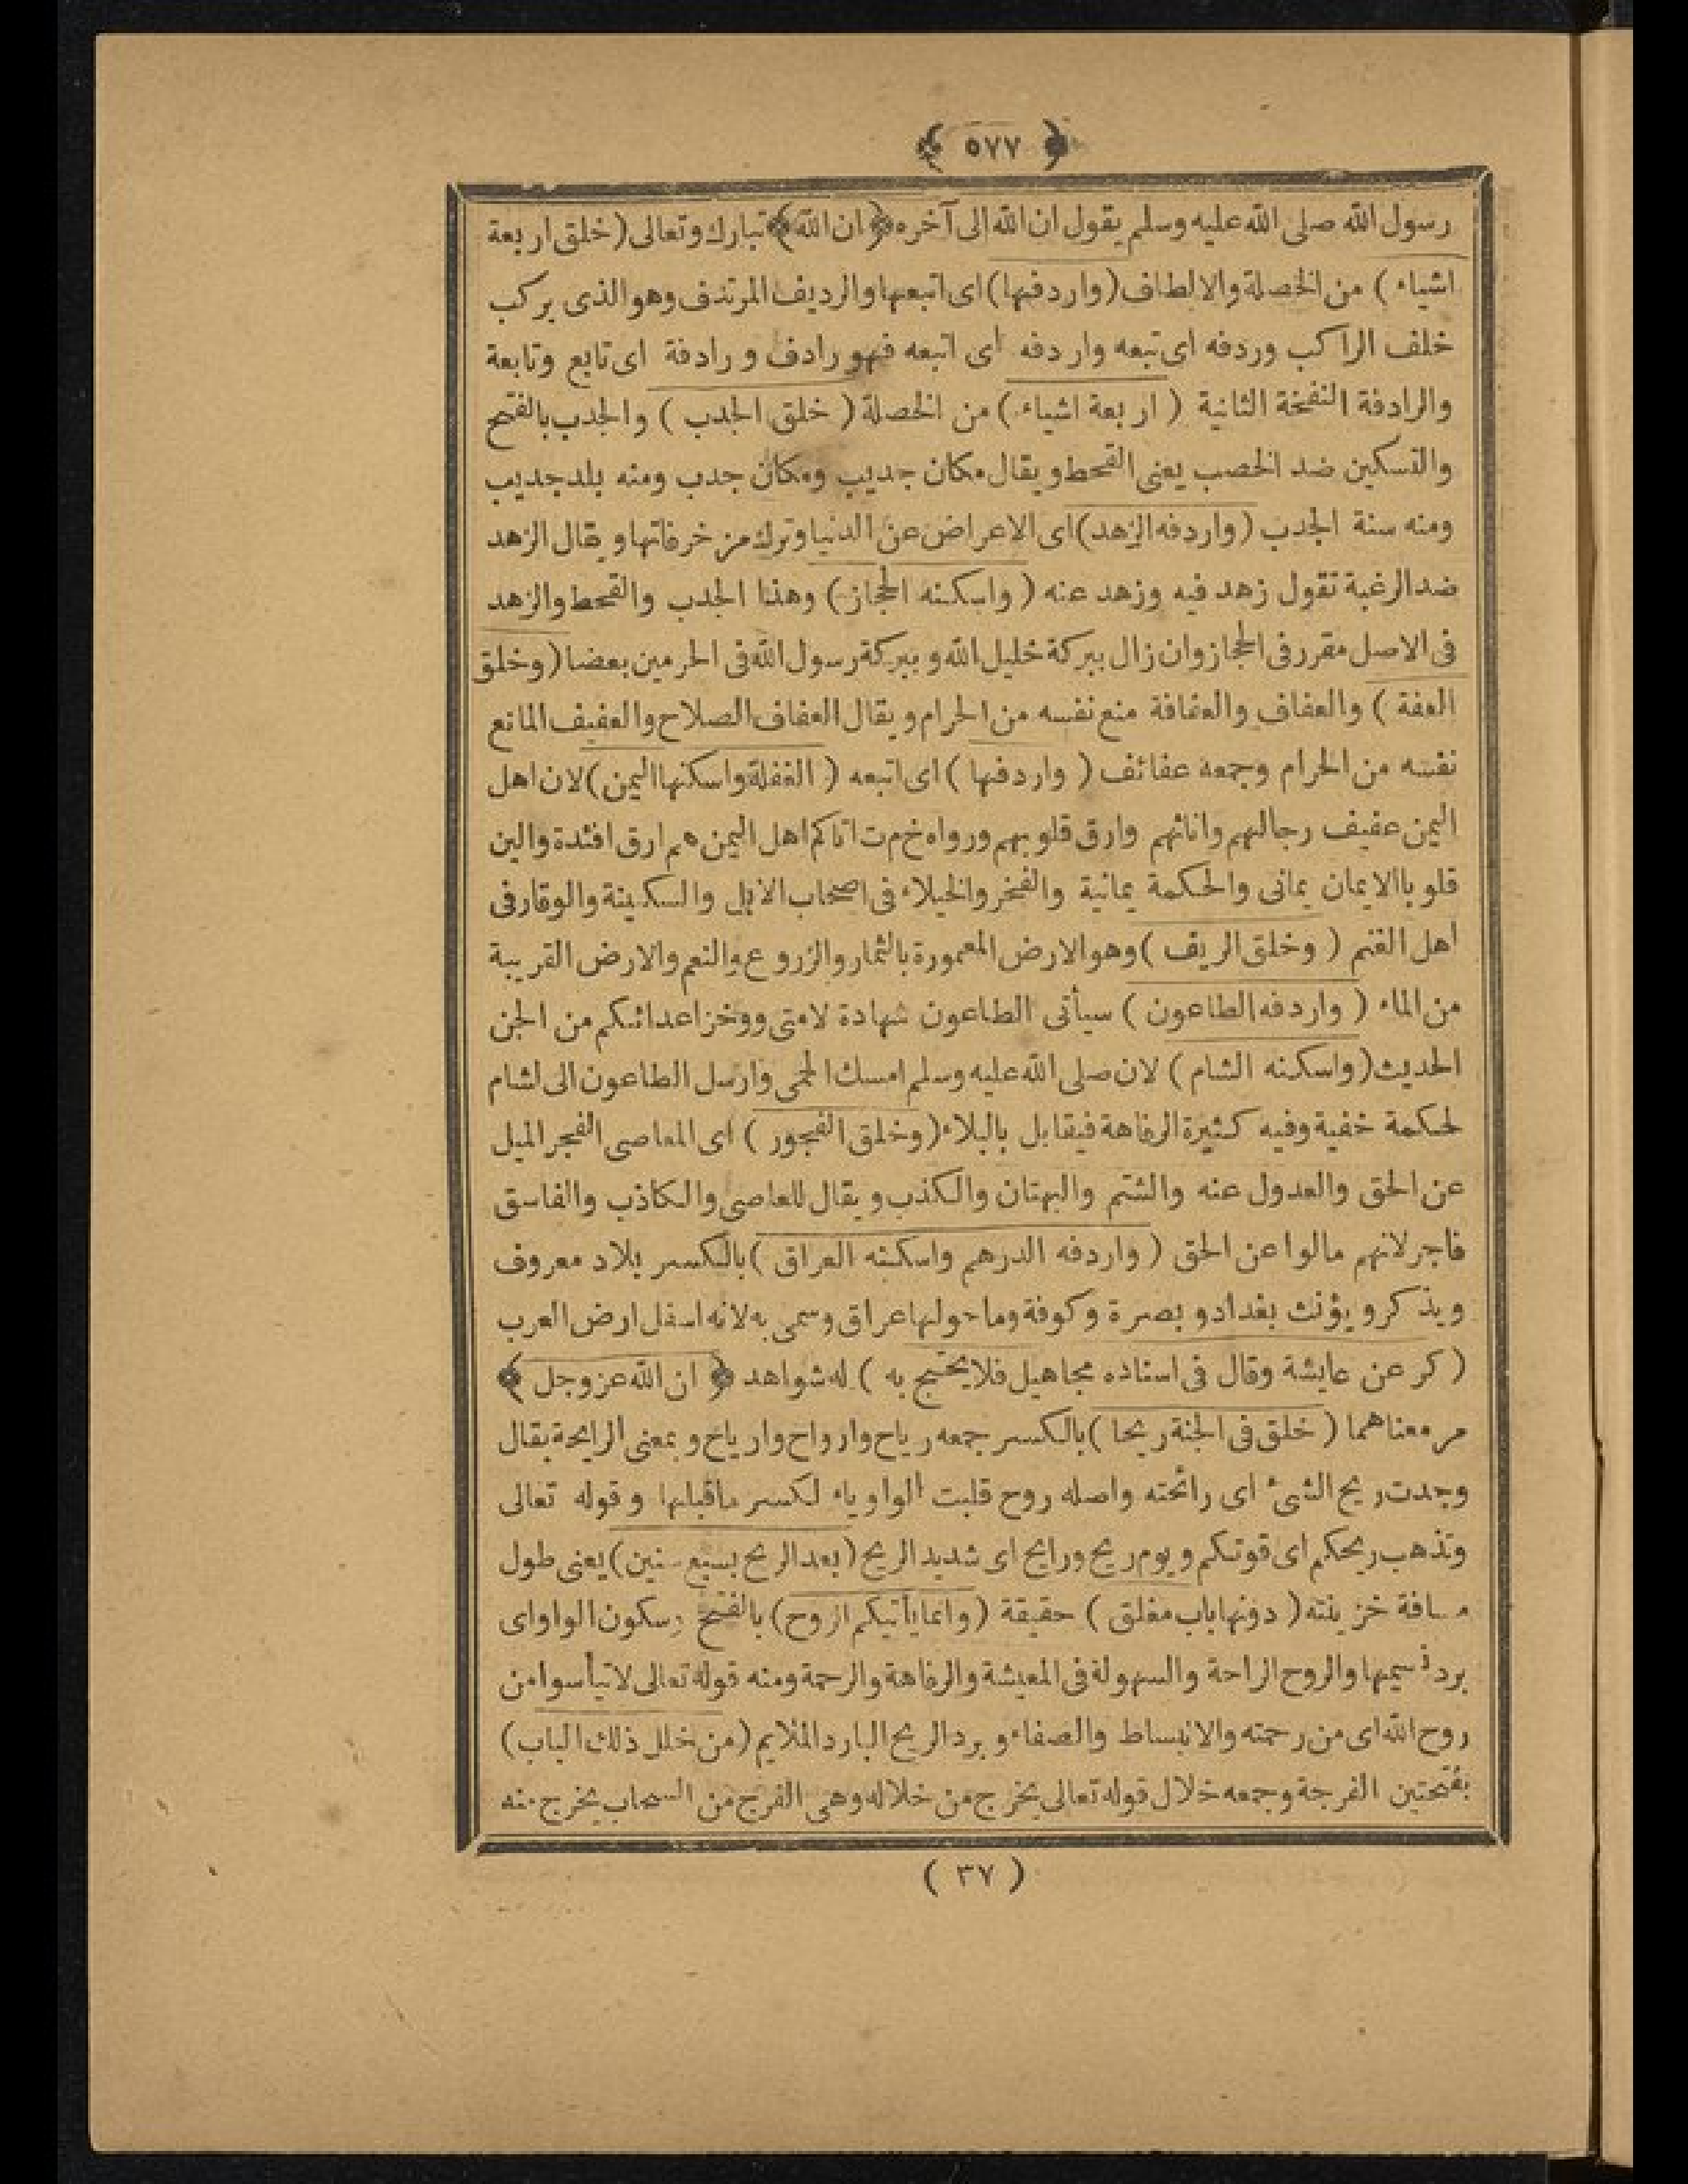 ﴿ ٥٧٧ ﴾
رسول الله صلى الله عليه وسلم يقول ان الله الى آخره ﴿ ان الله ﴾ تبارك وتعالى ( خلق اربعة
اشياء ) من الخصلة والالطاف ( واردفها ) اى اتبعها والرديف المرتدف وهو الذى يركب
خلف الراكب وردفه اى تبعه واردفه اى اتبعه فهو رادف ورادفة اى تابع وتابعة
والرادفة النفخة الثانية ( اربعة اشياء ) من الخصلة ( خلق الجدب ) والجدب بالفتح
والتسكين ضد الخصب يعنى القحط ويقال مكان جديب ومكان جدب ومنه بلد جديب
ومنه سنة الجدب ( واردفه الزهد ) اى الاعراض عن الدنيا وترك مزخرفاتها ويقال الزهد
ضد الرغبة تقول زهد فيه وزهد عنه ( واسكنه الحجاز ) وهذا الجدب والقحط والزهد
فى الاصل مقرر فى الحجاز وان زال ببركة خليل الله وببركة رسول الله فى الحرمين بعضا ( وخلق
العفة ) والعفاف والعفافة منع نفسه من الحرام ويقال العفاف الصلاح والعفيف المانع
نفسه من الحرام وجمعه عفائف ( واردفها ) اى اتبعه ( الغفلة واسكنها اليمن ) لان اهل
اليمن عفيف رجالهم واناثهم وارق قلوبهم ورواه خ م ت اتاكم اهل اليمن هم ارق افئدة والين
قلوبا الايمان يمانى والحكمة يمانية والفخر والخيلاء فى اصحاب الابل والسكينة والوقار فى
اهل الغنم ( وخلق الريف ) وهو الارض المعمورة بالثمار والزروع والنعم والارض القريبة
من الماء ( واردفه الطاعون ) سيأتى الطاعون شهادة لامتى ووخز اعدائكم من الجن
الحديث ( واسكنه الشام ) لان صلى الله عليه وسلم امسك الحمى وارسل الطاعون الى لشام
لحكمة خفية وفيه كثيرة الرفاهة فيقابل بالبلاء ( وخلق الفجور ) اى المعاصى الفجر الميل
عن الحق والعدول عنه والشتم والبهتان والكذب ويقال للعاصى والكاذب والفاسق
فاجر لانهم مالوا عن الحق ( واردفه الدرهم واسكنه العراق ) بالكسر بلاد معروف
ويذكر ويؤنث بغداد وبصرة وكوفة وما حولها عراق وسمى به لانه اسفل ارض العرب
( كر عن عايشة وقال فى اسناده مجاهيل فلا يحتج به ) له شواهد ﴿ ان الله عزوجل ﴾
مر معناهما ( خلق فى الجنة ريحا ) بالكسر جمعه رياح وارواح وارياح وبمعنى الرايحة يقال
وجدت ريح الشئ اى رائحته واصله روح قلبت الواو ياء لكسر ماقبلها وقوله تعالى
وتذهب ريحكم اى قوتكم ويوم ريح ورايح اى شديد الريح ( بعد الريح بسبع سنين ) يعنى طول
مسافة خزينته ( دونها باب مغلق ) حقيقة ( وانما يأتيكم الروح ) بالفتح وسكون الواو اى
برد نسيمها والروح الراحة والسهولة فى المعيشة والرفاهة والرحمة ومنه قوله تعالى لاتيأسوا من
روح الله اى من رحمته والانبساط والصفاء وبرد الريح البارد الملايم ( من خلل ذلك الباب )
بفتحتين الفرجة وجمعه خلال قوله تعالى يخرج من خلاله وهى الفرج من السحاب يخرج منه
( ٣٧ )